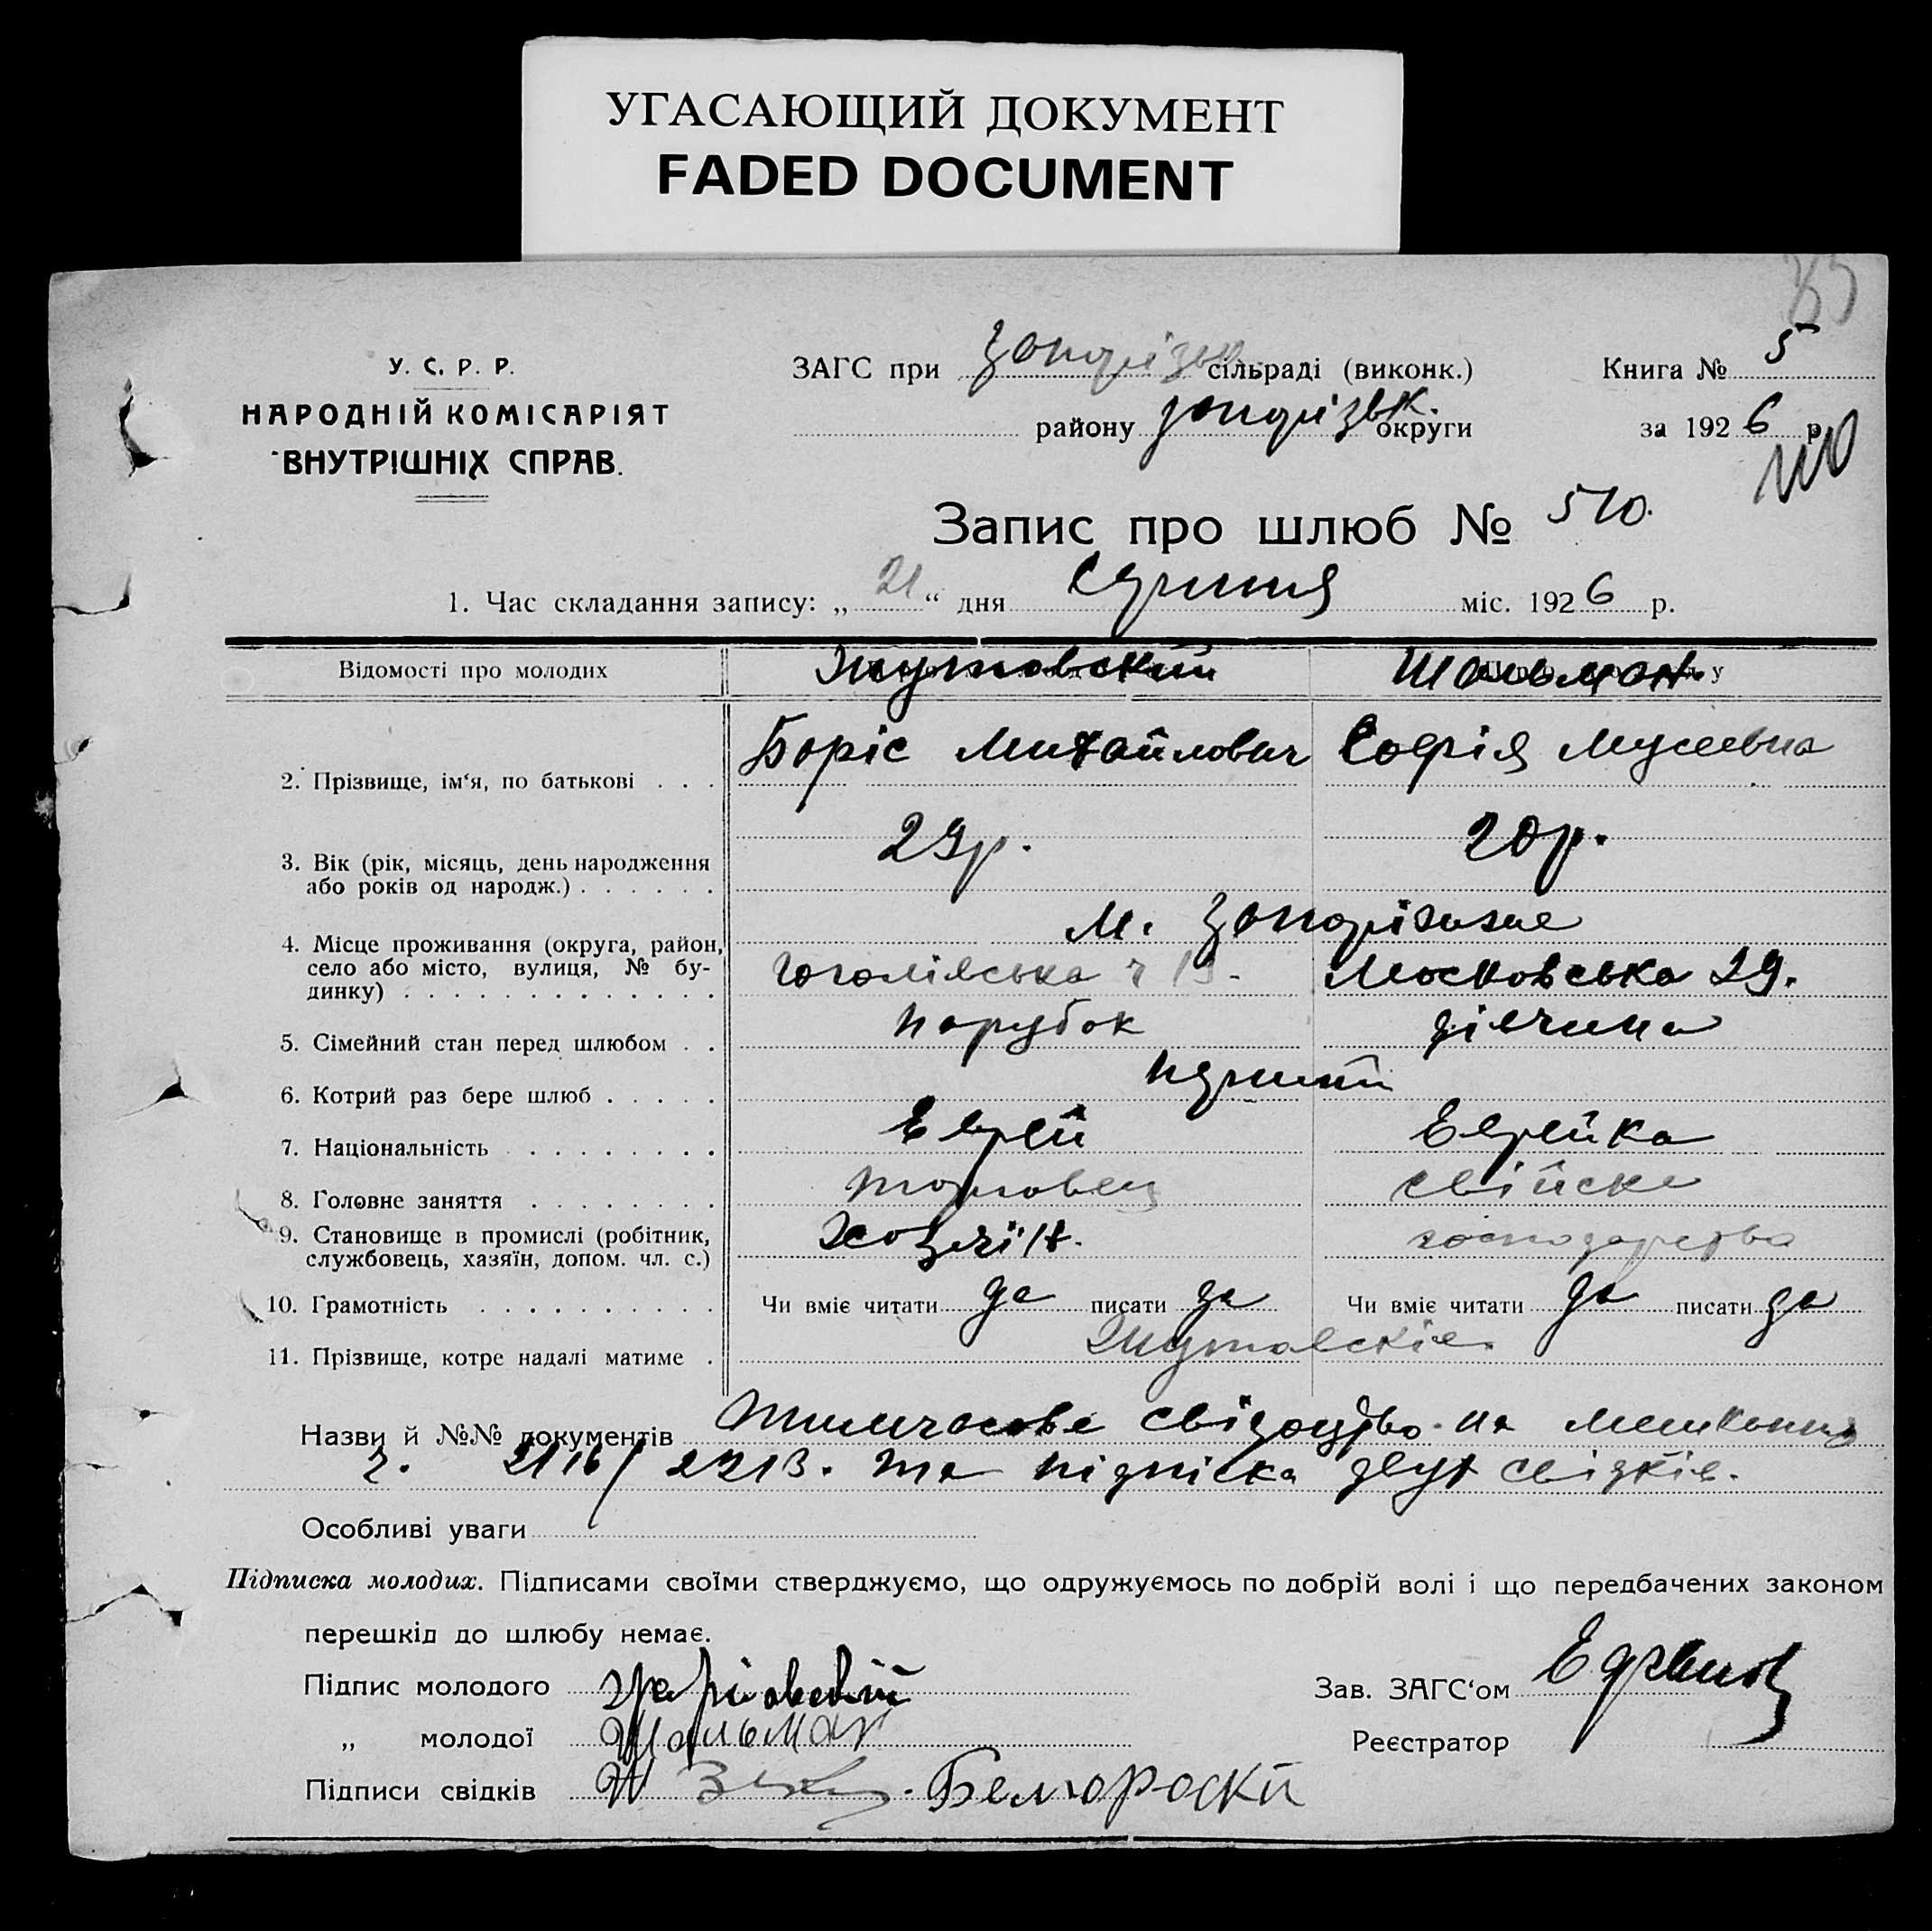 УГАСАЮЩИЙ ДОКУМЕНТ
FADED DOCUMENT
У. С. Р. Р.
НАРОДНІЙ КОМІСАРІЯТ
ВНУТРІШНІХ СПРАВ.
ЗАГС при Запорізьк сільраді (виконк.)
району Запорізьк. округи
Книга № 5
за 1926 р.
Запис про шлюб № 510.
1. Час складання запису: „21“ дня Серпня міс. 1926 р.
Відомості про молодих Шальман.
2. Прізвище, ім‘я, по батькові . . . Боріс Михайлович Софія Мусеевна
3. Вік (рік, місяць, день народження 29р. 20р.
або років од народж.) . . . . . .
4. Місце проживання (округа, район, м. Запоріжжє
село або місто, вулиця, № бу- Гоголівська ч Московська 29.
динку) . . . . . . . . . . . . .
5. Сімейний стан перед шлюбом . . парубок дівчина
6. Котрий раз бере шлюб . . . . . перший
7. Національність . . . . . . . . Еврей Еврейка
8. Головне заняття . . . . . . . . торговец свійске
9. Становище в промислі (робітник, Хозяїн. господарства
службовець, хазяїн, допом. чл. с.)
10. Грамотність . . . . . . . . . . Чи вміє читати да писати да Чи вміє читати да писати да
11. Прізвище, котре надалі матиме .
Назви й №№ документів тимчасове свідоцтво на мешкання
ч. 2116/2213. та підпіска двух свідків.
Особливі уваги
Підписка молодих. Підписами своїми стверджуємо, що одружуємось по добрій волі і що передбачених законом
перешкід до шлюбу немає.
Підпис молодого
„ молодої Шальман
Підписи свідків Белгороский
Зав. ЗАГС‘ом
Реєстратор